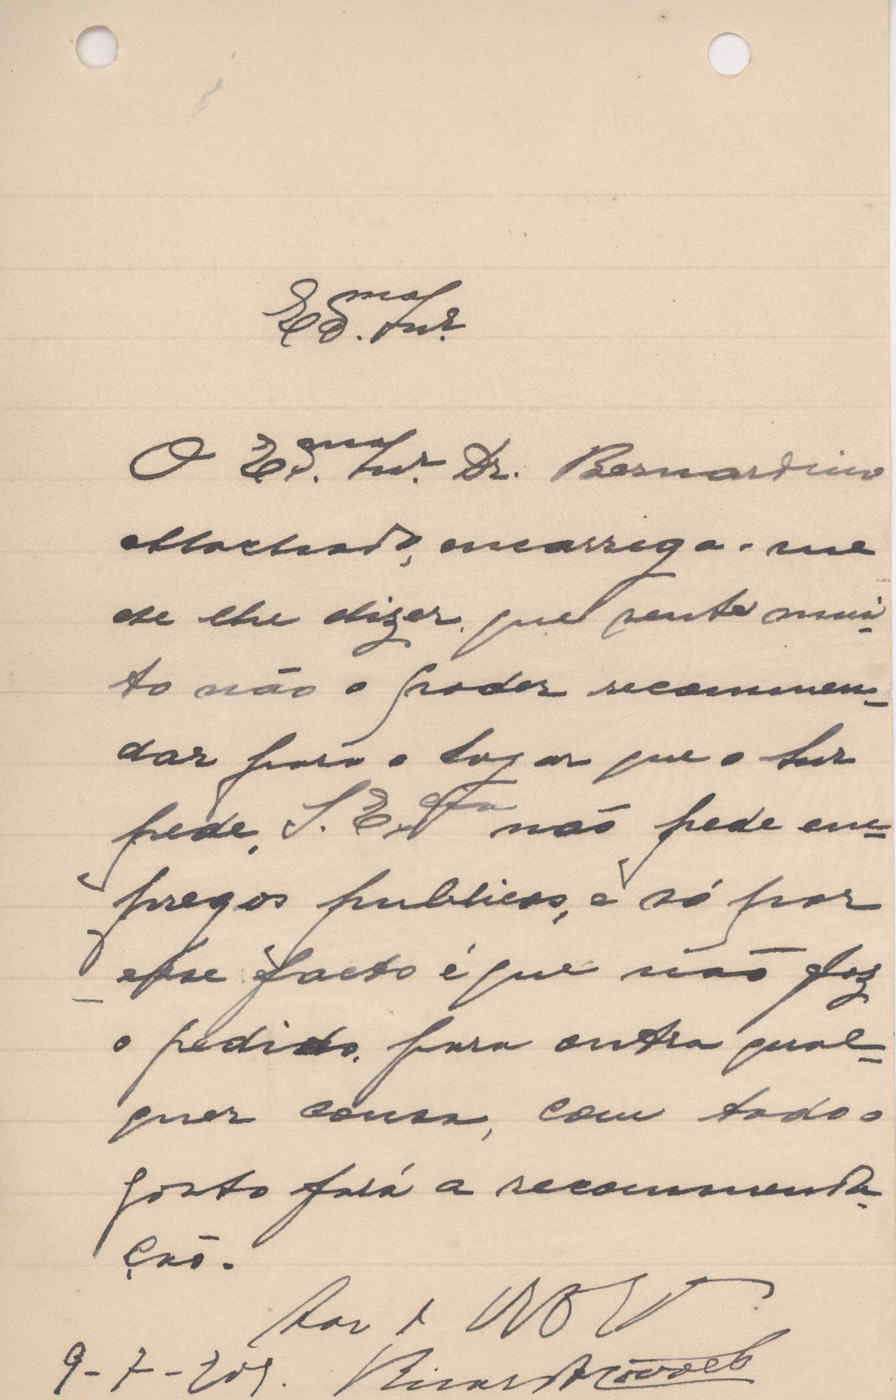 Ex.mo Snr.
O Ex.mo Snr. Dr. Bernardino
Machado, encarrega-me
de lhe dizer que sente mui-
to não o poder recommen-
dar para o logar que o Snr
pede. S. Ex.cia não pede em-
pregos publicos, e só por
esse facto é que não faz
o pedido. para outra qual-
quer cousa, com todo o
gosto fará a recommenda-
ção.
9-7-